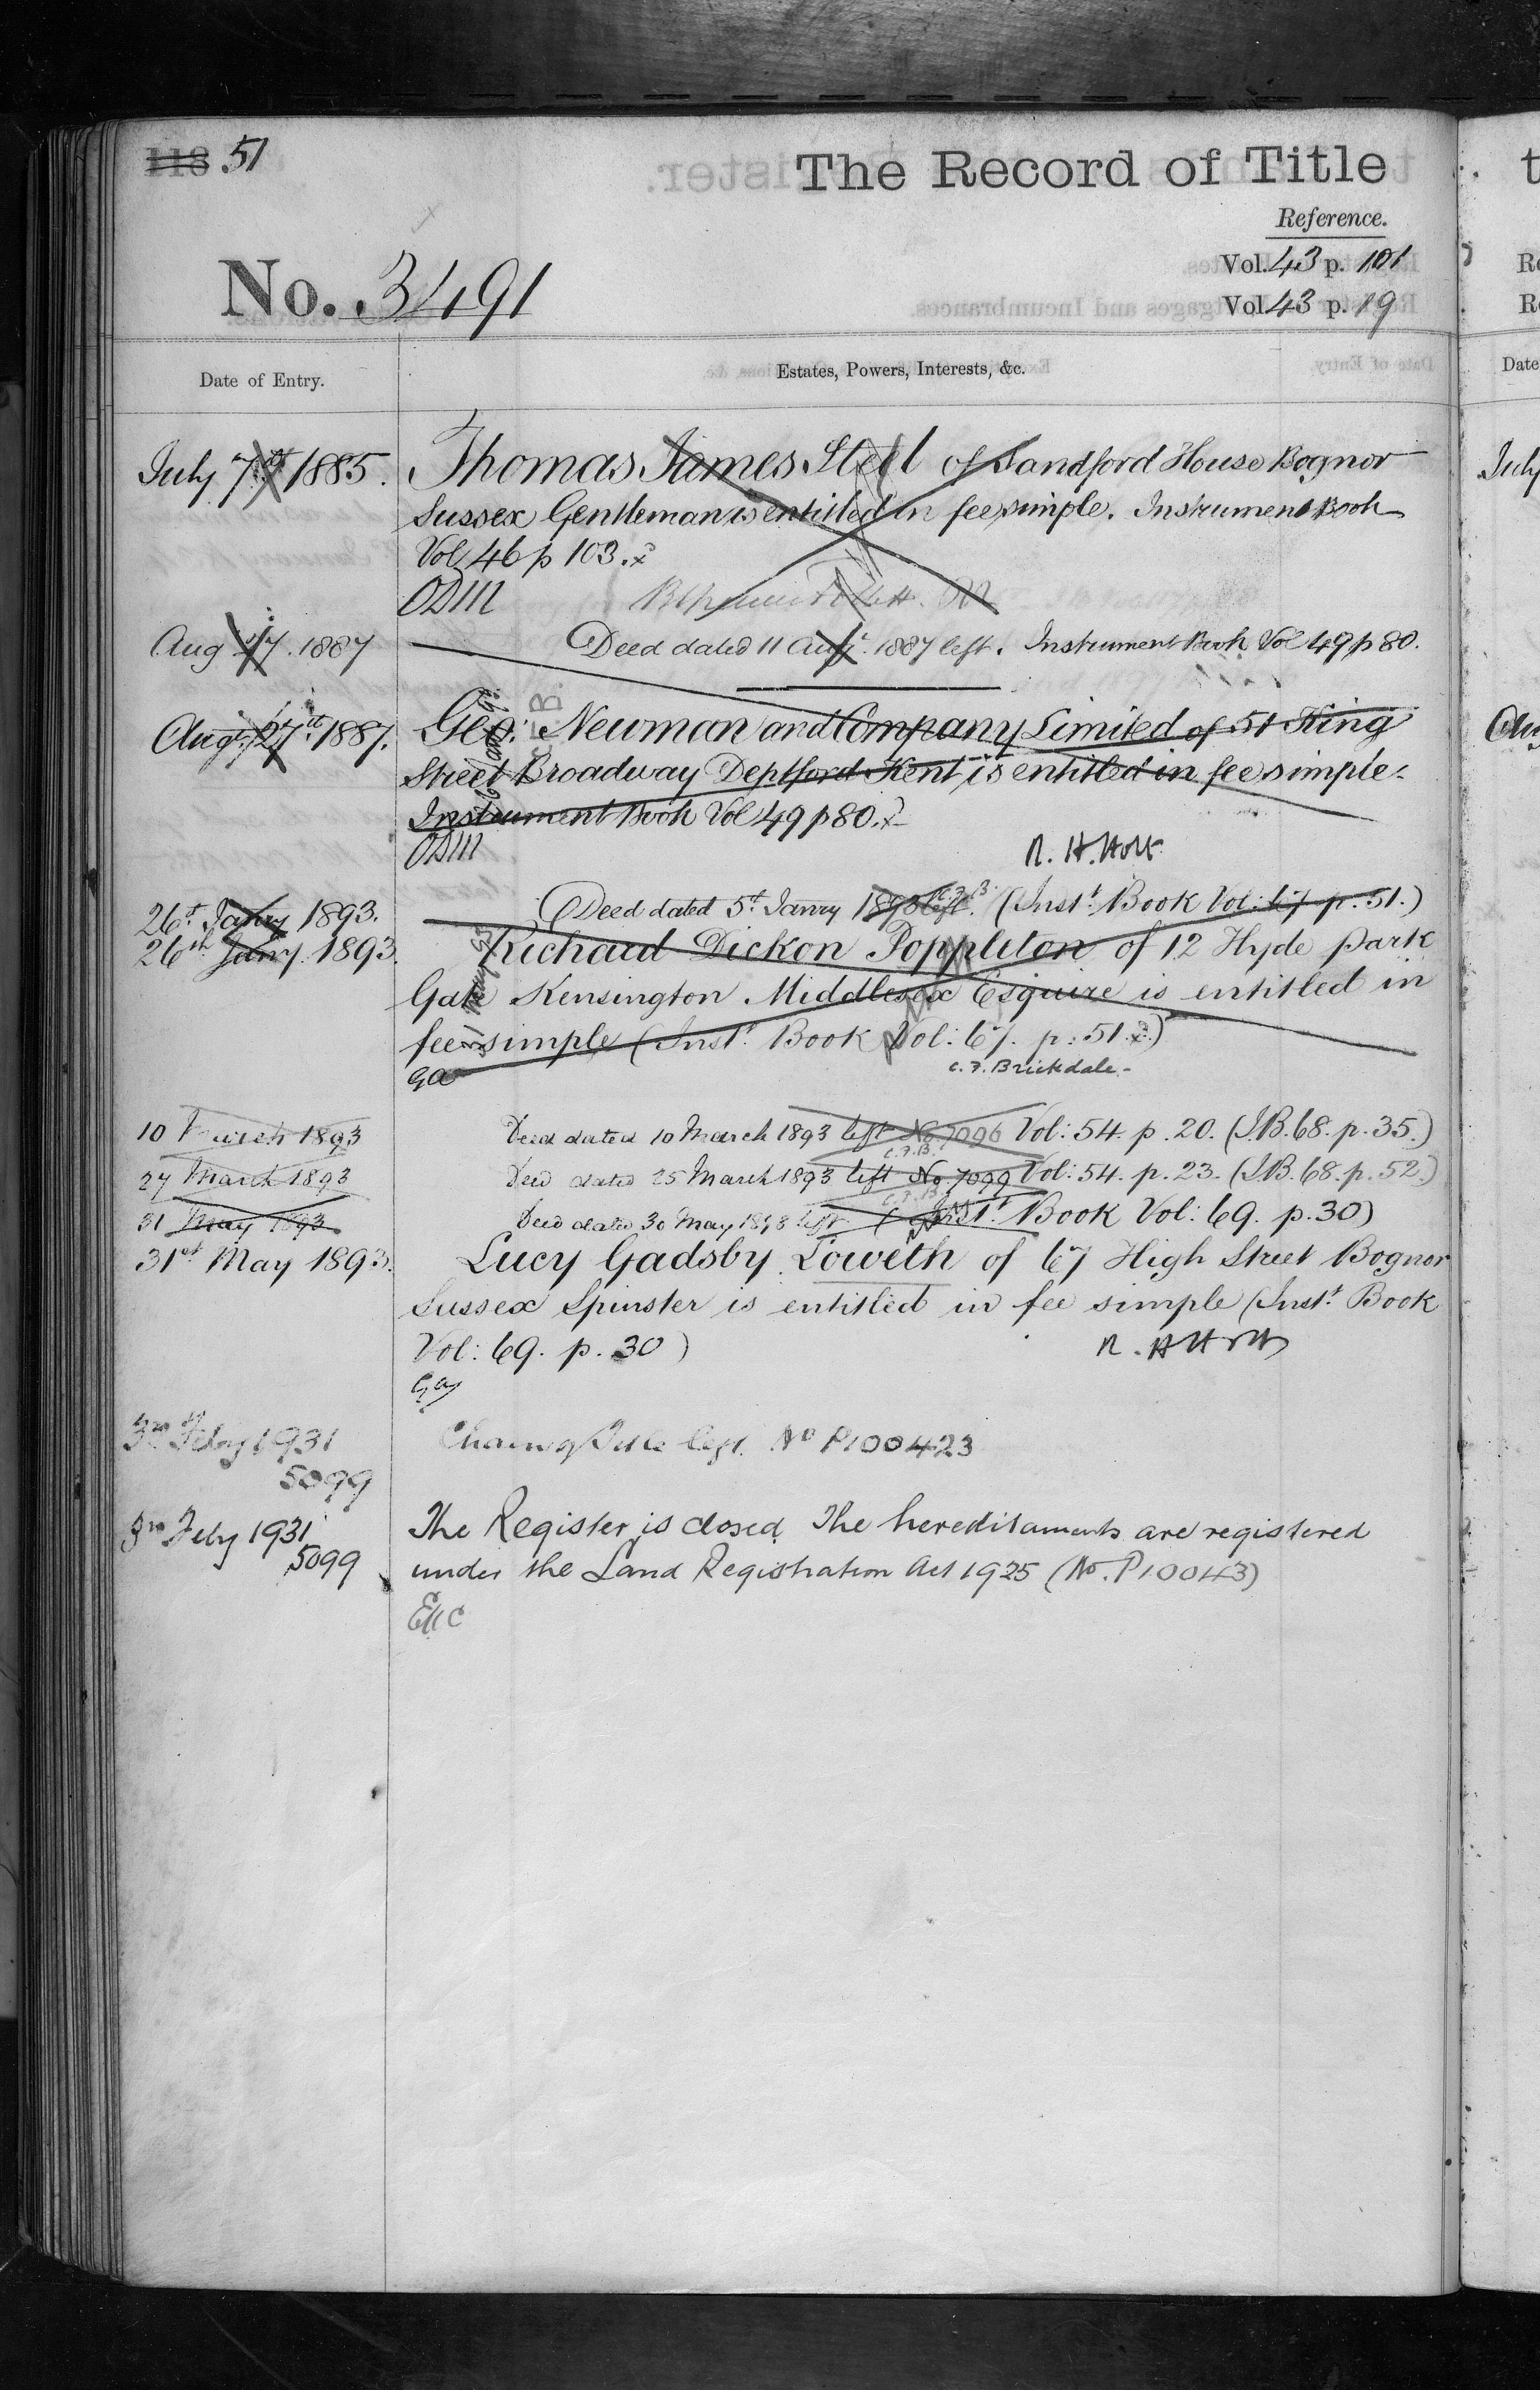 118 51
The Record of Title
Reference.
Vol. 43 p. 101
No. 3491
Vol. 43 p. 19
Date of Entry.
Estates, Powers, Interests, &c.
July 7th 1885. Thomas James Steel of Sandford House Bognor
Sussex Gentleman is entitled in fee simple. Instrument Book
Vol 46 p 103.
Aug 27. 1887 Deed dated 11 Augt. 1887 left. Instrument Book Vol 49 p 80.
Augt. 27th 1887. Geo: Newman and Company Limited of 51 King
Street Broadway Deptford Kent is entitled in fee simple.
Instrument Book Vol 49 p 80.
R. H. Holt
26t. Janry 1893. Deed dated 5t. Janry 1893 left. (Inst. Book Vol: 67 p. 51.)
26th Janry. 1893. Richard Dickon Poppleton of 12 Hyde Park
Gate Kensington Middlesex Esquire is entitled in
fee simple (Inst. Book Vol: 67. p: 51.)
GA
C. F. Brickdale
10 March 1893 Deed dated 10 March 1893 left No 7096 Vol: 54. p. 20. (I.B. 68. p. 35.)
C.F.B.
27 March 1893 Deed dated 25 March 1893 left No 7099 Vol: 54. p. 23. (I.B. 68. p. 52.)
C.F.B.
31 May 1893 Deed dated 30 May 1893 left (Inst. Book Vol: 69. p. 30)
31st May 1893. Lucy Gadsby Loweth of 67 High Street Bognor
Sussex Spinster is entitled in fee simple (Inst. Book
Vol: 69. p. 30)
R. H. Holt
3rd Feby 1931 Chain of Title left. No P100423
5099
3rd Feby 1931 The Register is closed. The hereditaments are registered
5099 under the Land Registration Act 1925 (No. P10043)